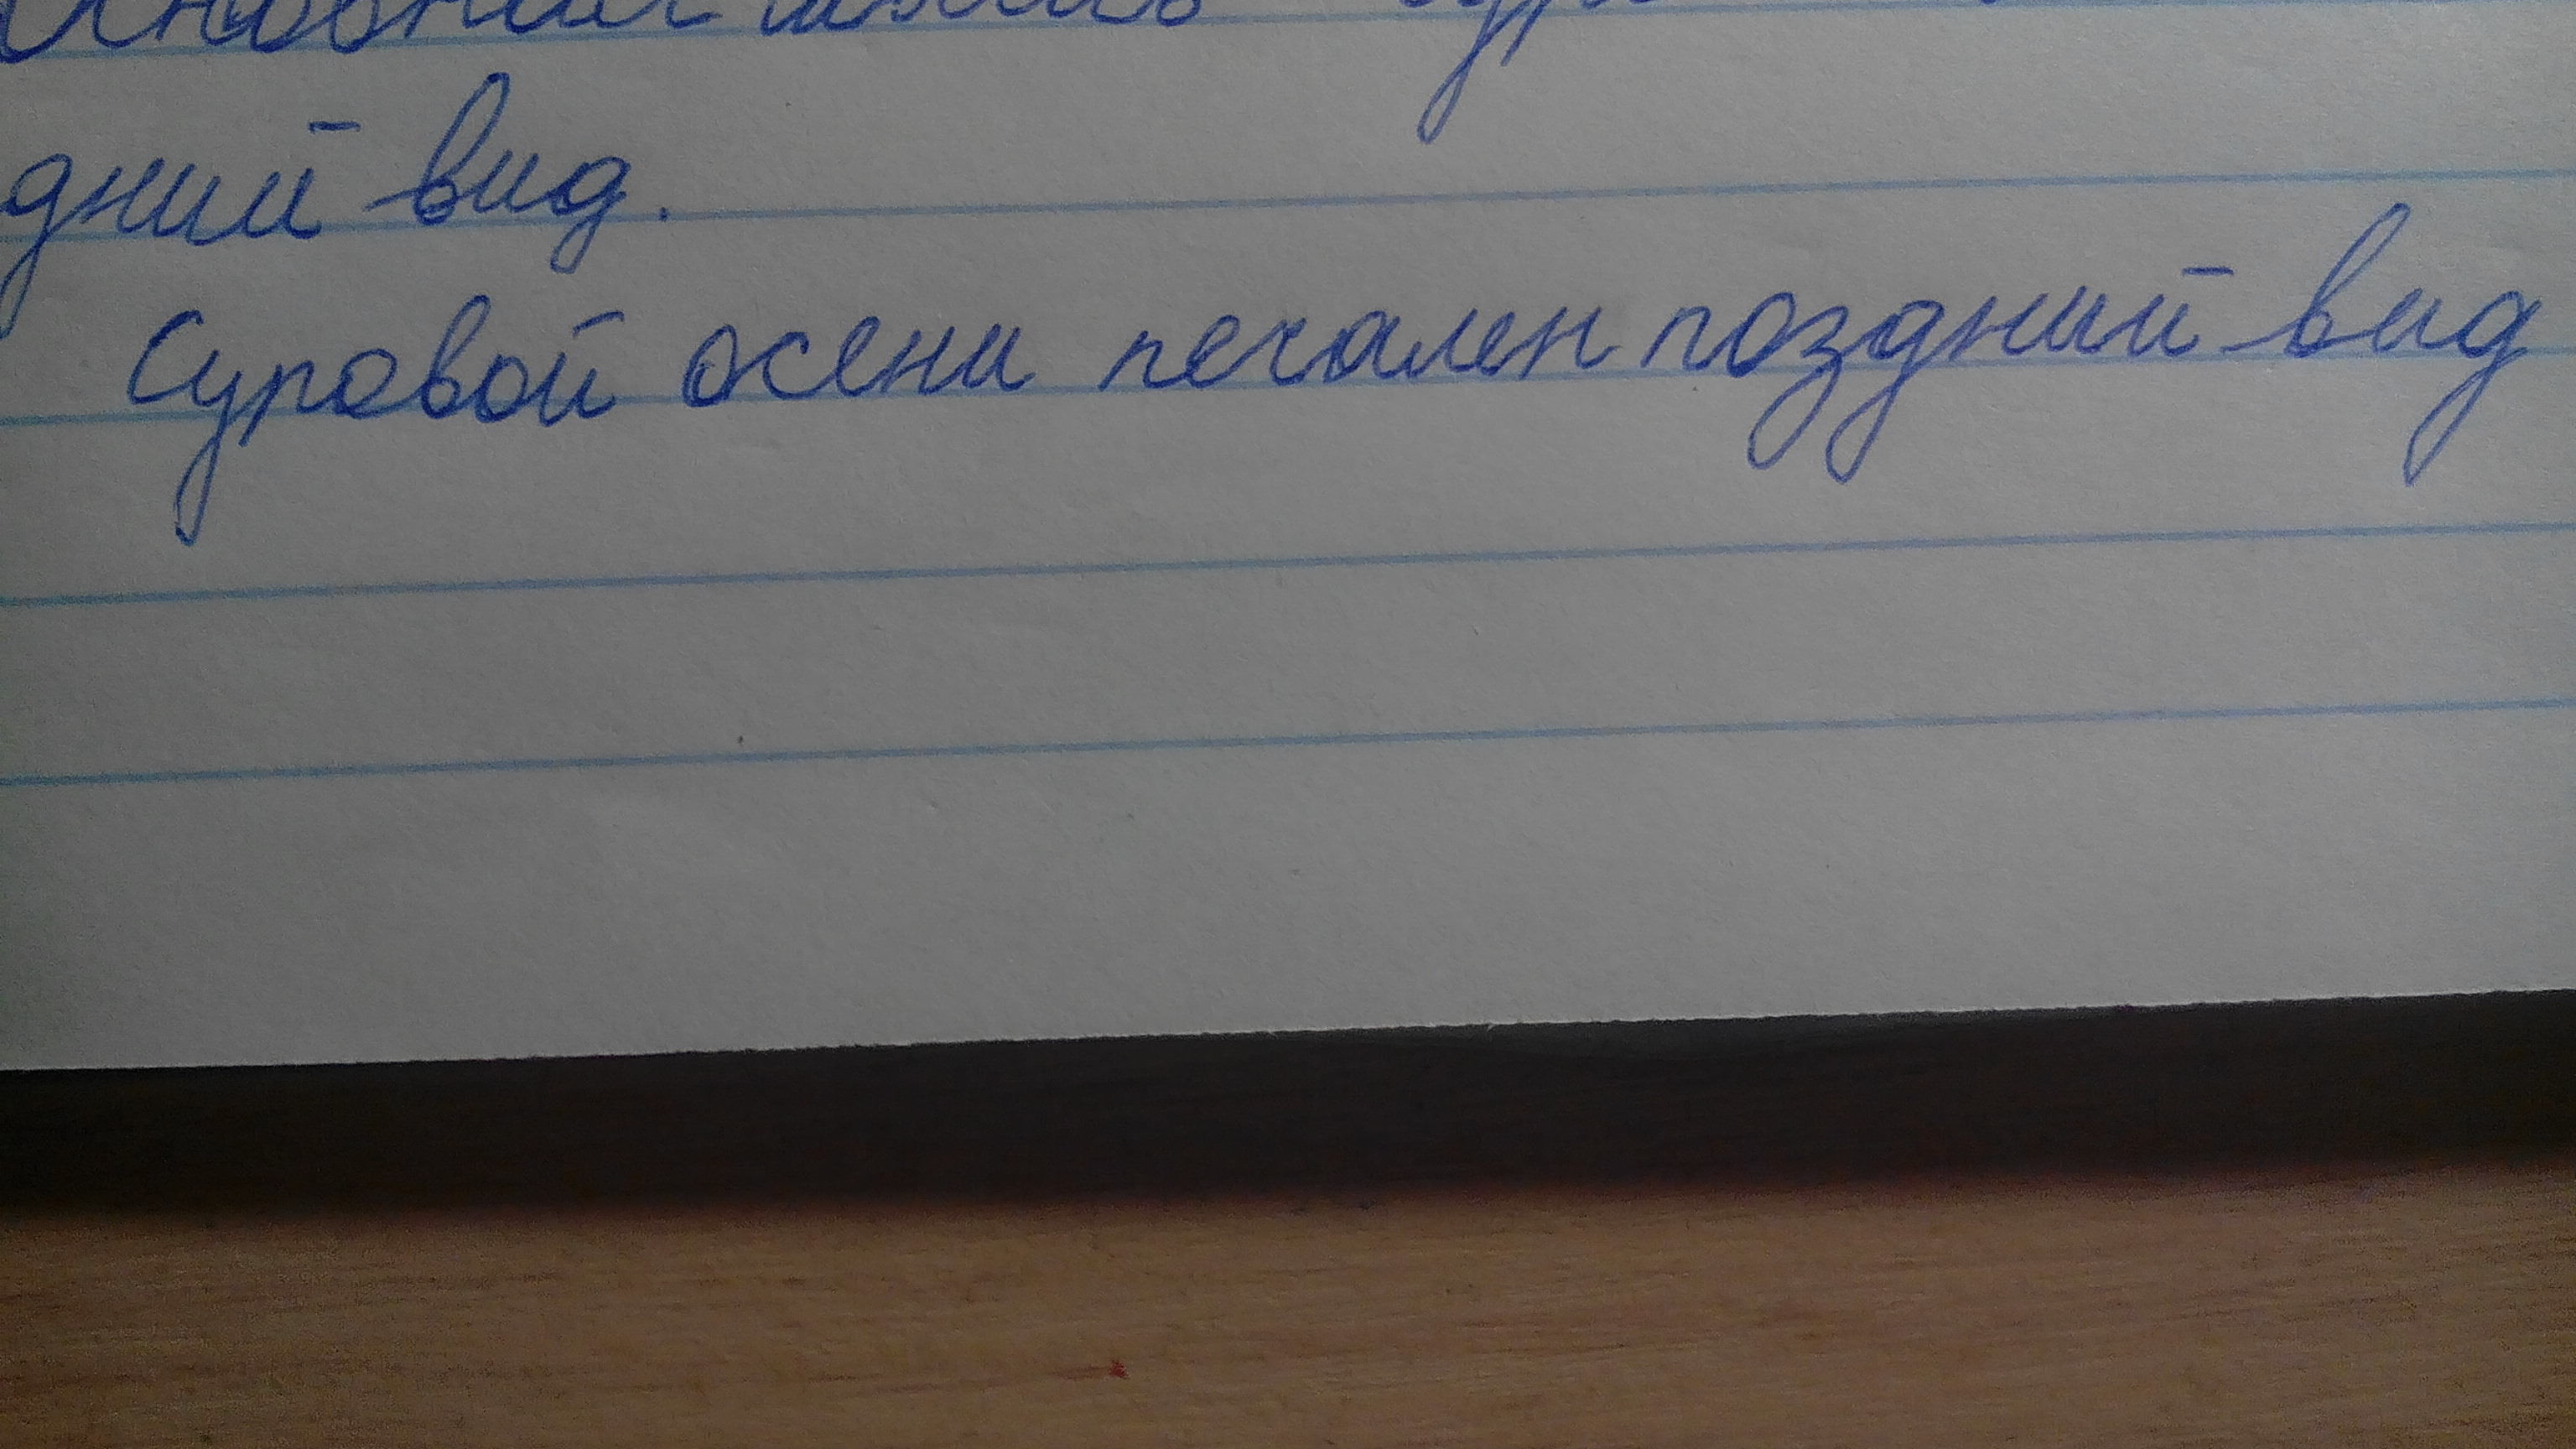 дний вид.
Суровой осени печален поздний вид